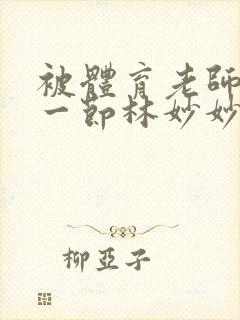 被體育老師
一節林妙妙
柳亞子